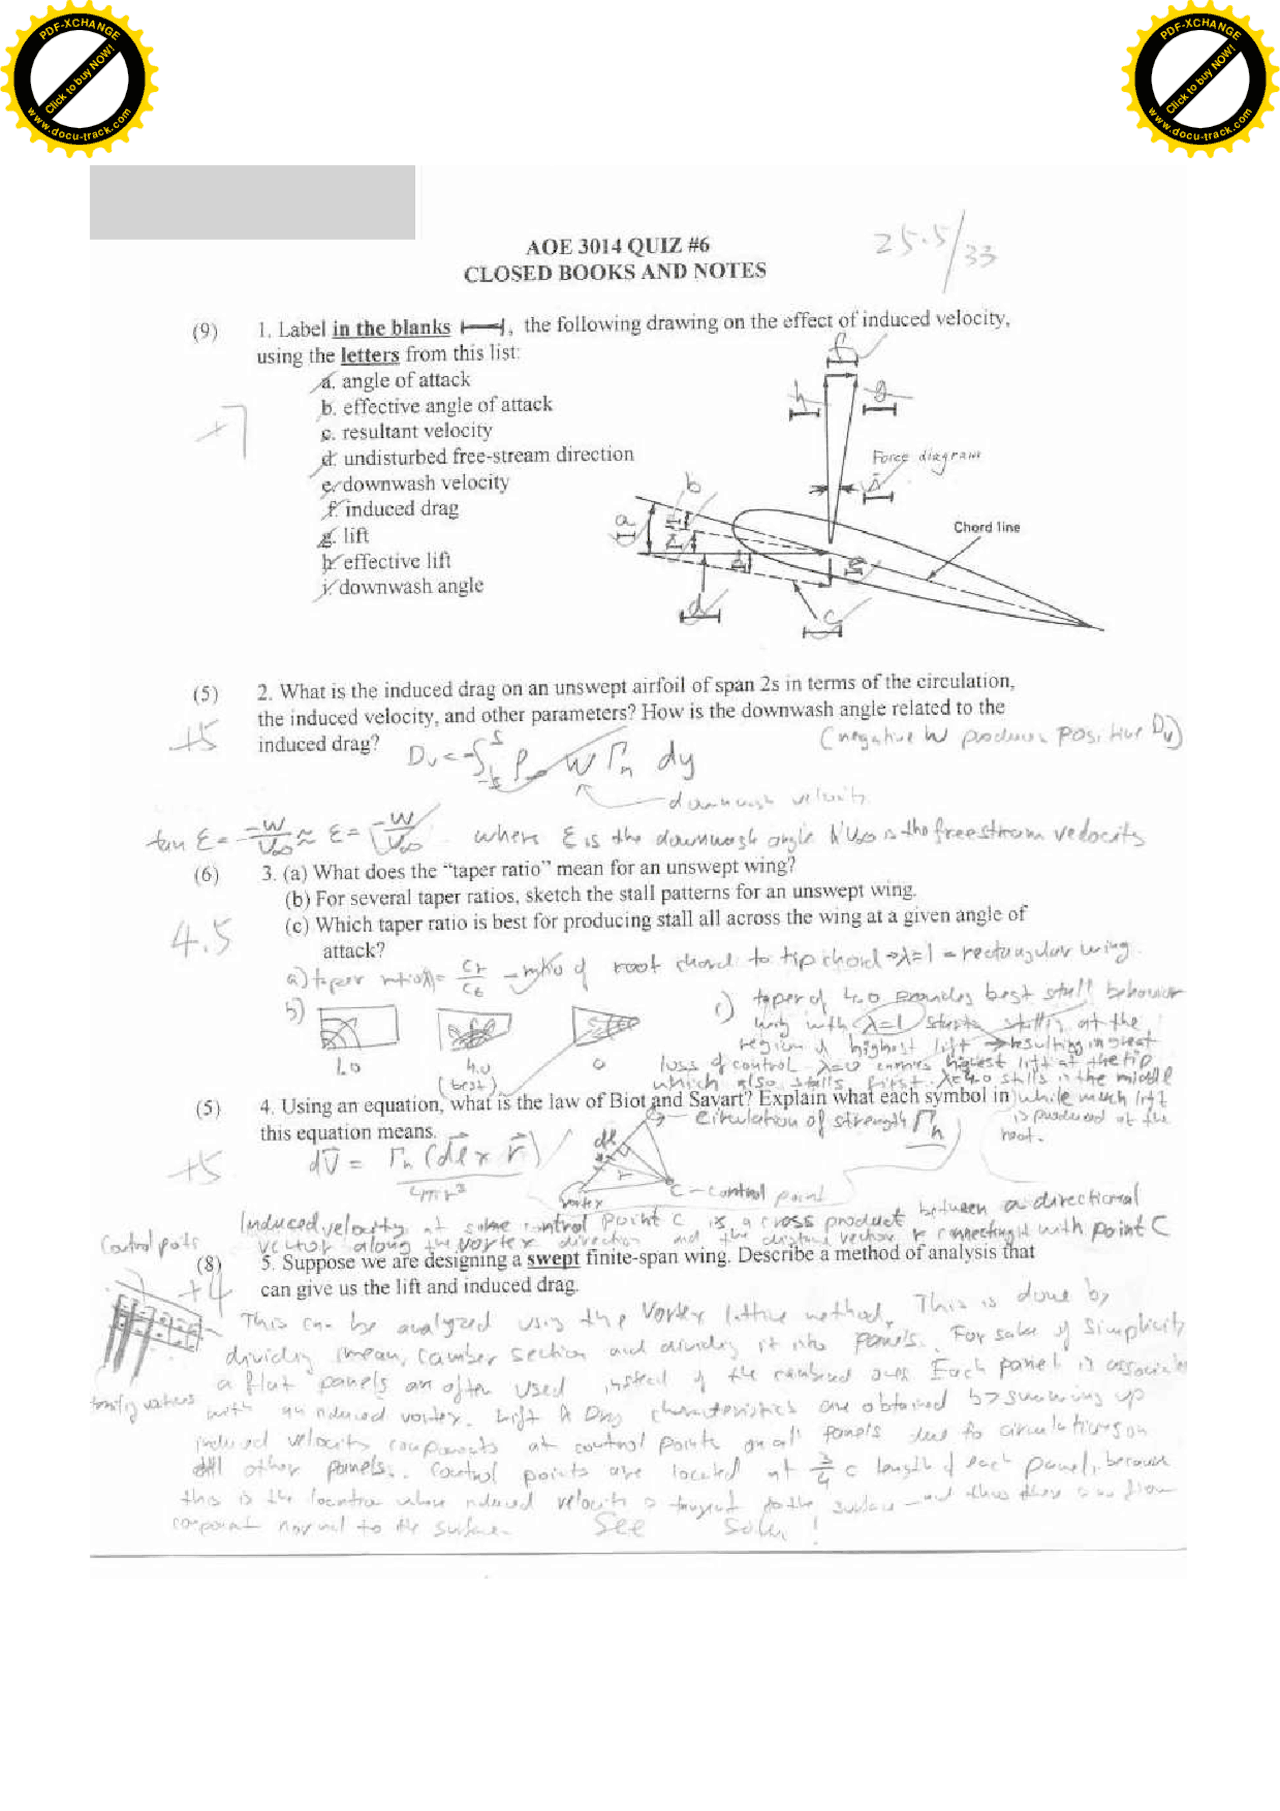 PDF-XCHANGE
Click to buy NOW!
www.docu-track.com
PDF-XCHANGE
Click to buy NOW!
www.docu-track.com
25.5/33
AOE 3014 QUIZ #6
CLOSED BOOKS AND NOTES
(9) 1. Label in the blanks, the following drawing on the effect of induced velocity,
using the letters from this list:
a. angle of attack
b. effective angle of attack
c. resultant velocity
d. undisturbed free-stream direction
e. downwash velocity
f. induced drag
g. lift
h. effective lift
i. downwash angle
+7
f
h
g
Force diagram
i
b
a
Chord line
d
c
(5) 2. What is the induced drag on an unswept airfoil of span 2s in terms of the circulation,
the induced velocity, and other parameters? How is the downwash angle related to the
induced drag?
+5
(negative W produces positive Dv)
Dv = -∫ ρ∞ W Γn dy
downwash velocity
tan ε = -W/U∞ ≈ ε = -W/U∞ where ε is the downwash angle & U∞ is the freestream velocity
(6) 3. (a) What does the “taper ratio” mean for an unswept wing?
(b) For several taper ratios, sketch the stall patterns for an unswept wing.
(c) Which taper ratio is best for producing stall all across the wing at a given angle of
attack?
4.5
a) taper ratio λ = cr/ct = ratio of root chord to tip chord → λ=1 = rectangular wing.
b)
1.0
4.0
(best)
0
c) taper of 4.0 provides best stall behavior
wing with λ=1 starts stalling at the
region of highest lift → resulting in great
loss of control λ=0 ensures highest lift at the tip
which also stalls first. λ=4.0 stalls in the middle
while much lift
is produced at the
root.
(5) 4. Using an equation, what is the law of Biot and Savart? Explain what each symbol in
this equation means.
+5
dV = Γn (dl x r) / 4πr³
dl
r
vortex
circulation of strength Γn
C - control point
Induced velocity at some control point C is a cross product between a directional
vector along the vortex direction and the distance vector r connecting it with point C
(8) 5. Suppose we are designing a swept finite-span wing. Describe a method of analysis that
can give us the lift and induced drag.
+4
Control pts
This can be analyzed using the Vortex lattice method. This is done by
dividing mean camber section and dividing it into panels. For sake of simplicity
a flat panels are often used instead of the cambered ones. Each panel is associated
with an induced vortex. Lift & Drag characteristics are obtained by summing up
induced velocity components at control points on all panels due to circulations on
all other panels. Control points are located at 3/4 c length of each panel, because
this is the location where induced velocity is tangent to the surface and thus there is no flow
component normal to the surface.
See Soln!